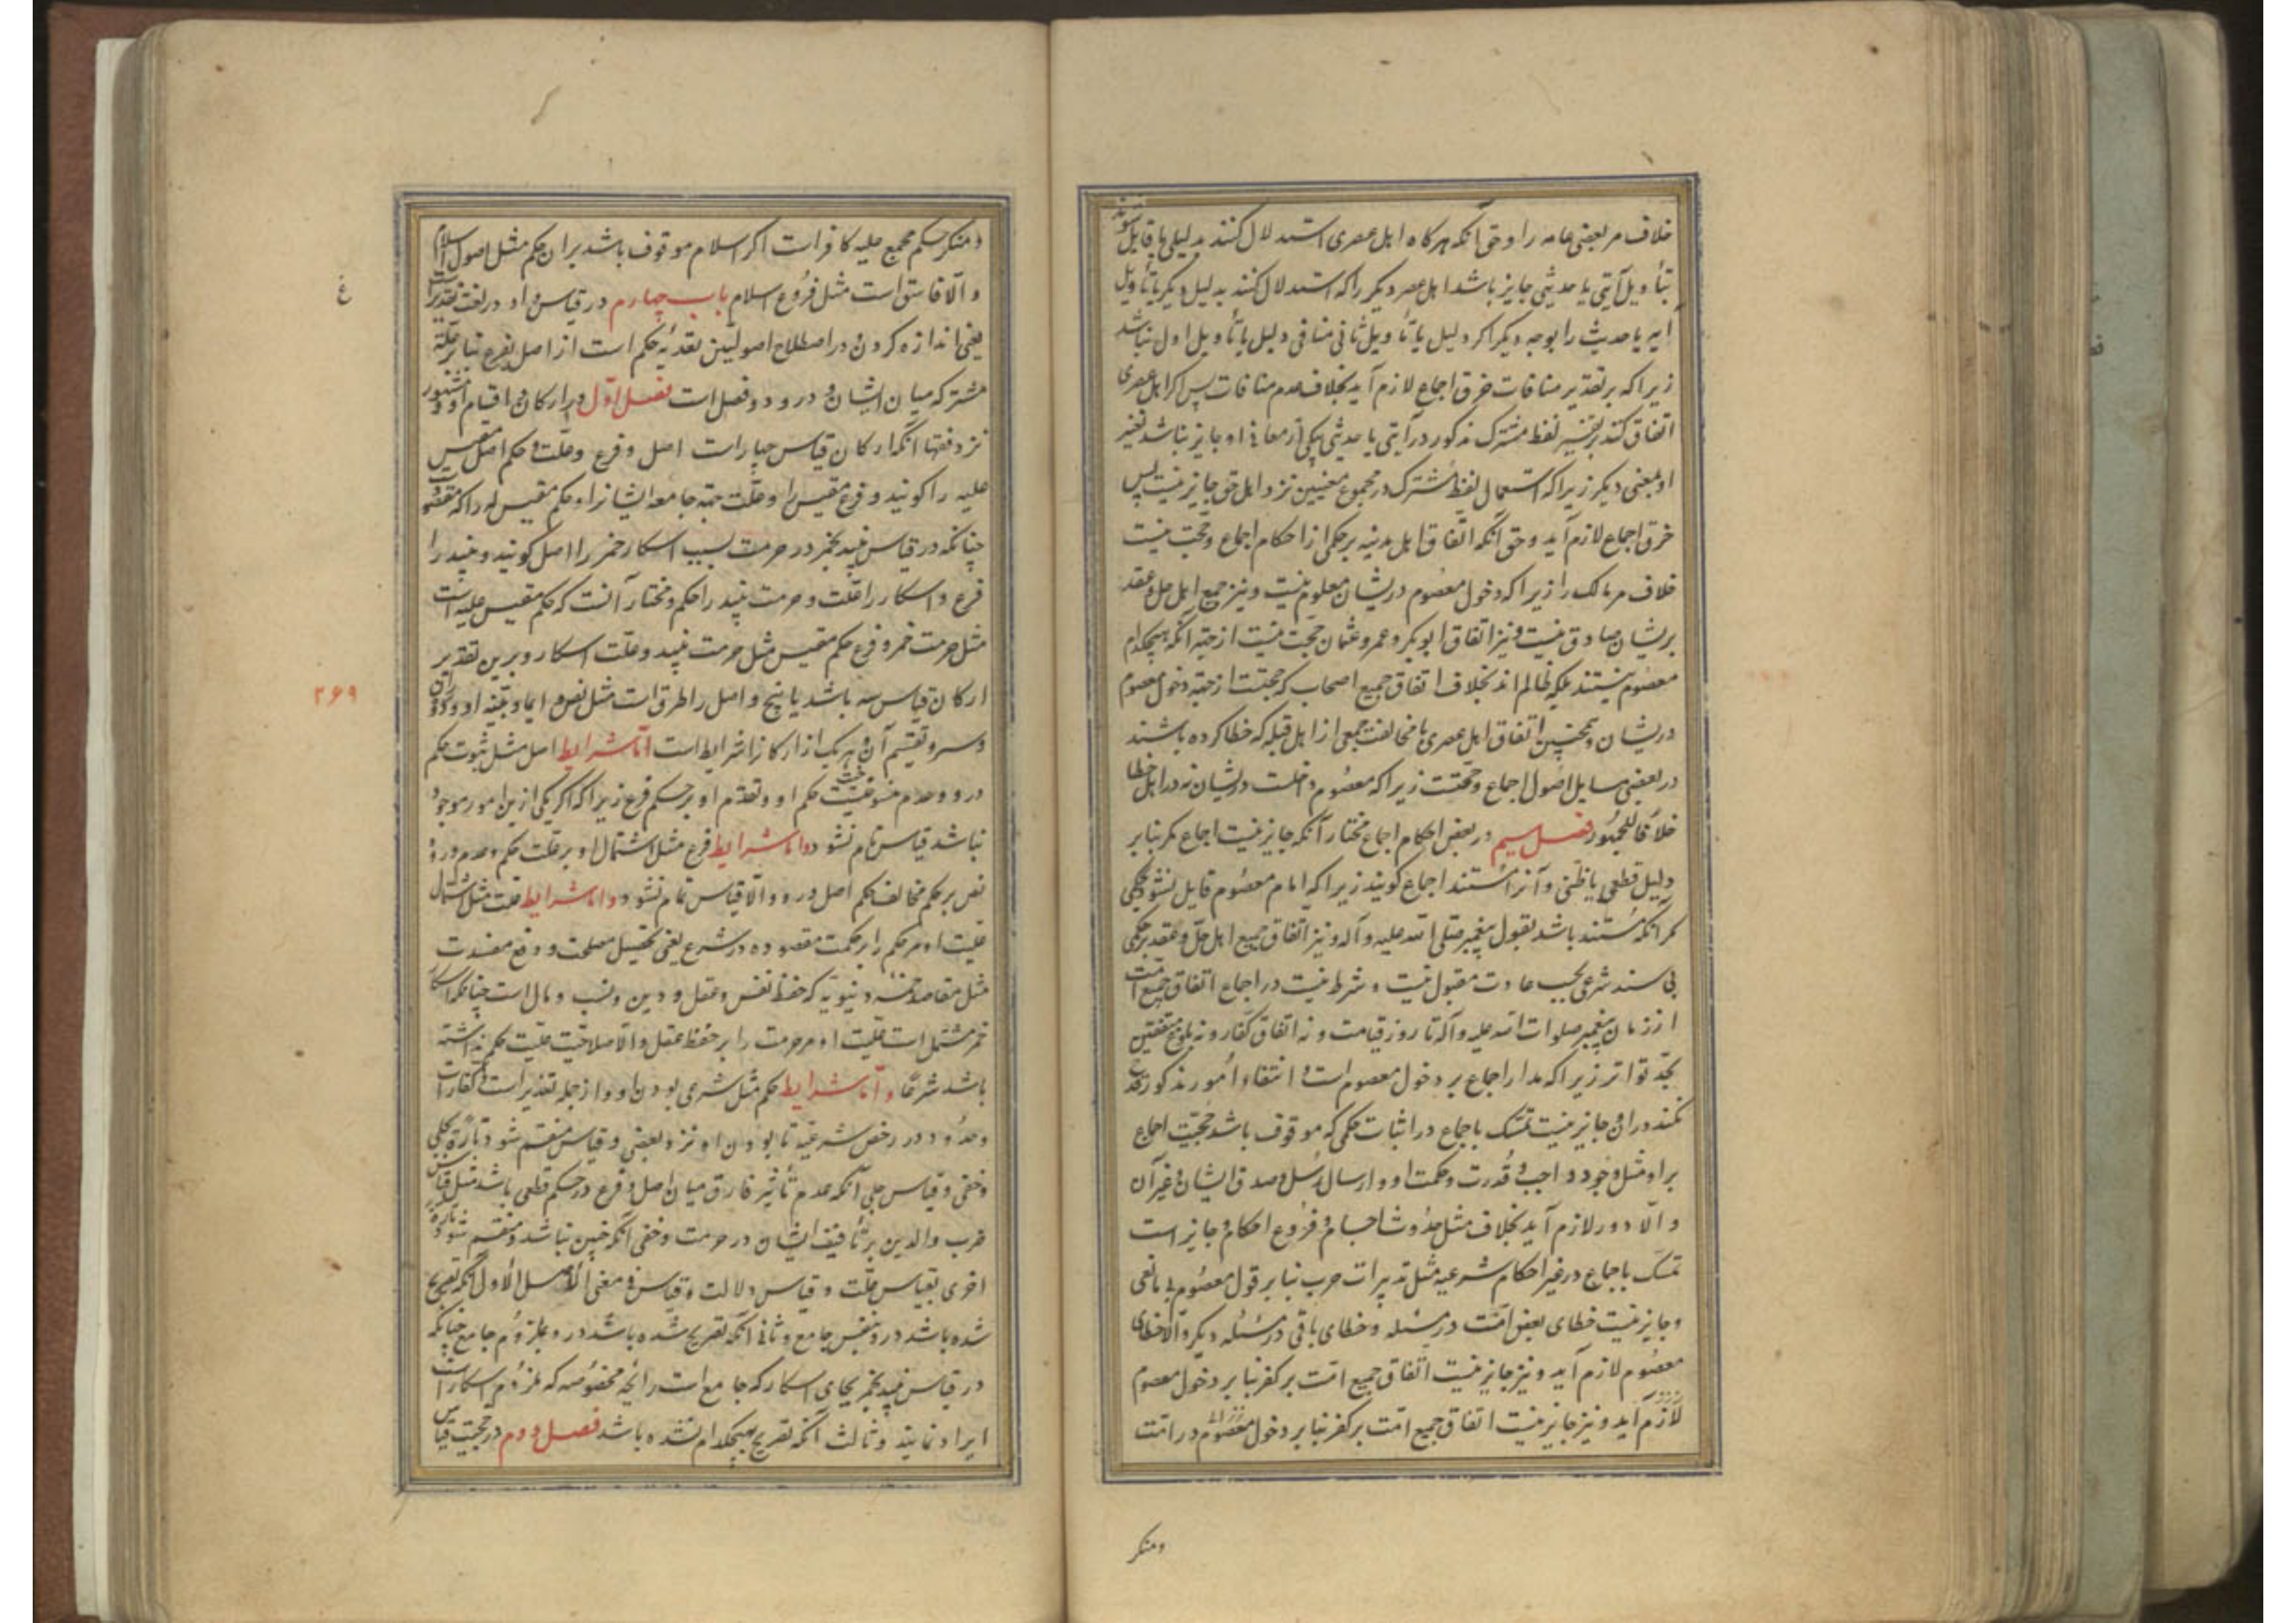 خلاف مر بعضی عامه را و حق آنکه هرکاه اهل عصری استدلال کنند بدلیلی یا قایل شوند
بتأویل آیتی یا حدیثی جایز باشد اهل عصر دیکر را که استدلال کنند بدلیل دیکر یا تأویل
آیه یا حدیث را بوجه دیکر اکر دلیل یا تأویل ثانی منافی دلیل یا تأویل اول نباشد
زیرا که بر تقدیر منافات خرق اجماع لازم آید بخلاف عدم منافات پس اکر اهل عصری
اتفاق کنند بر تفسیر لفظ مشترک مذکور در آیتی یا حدیثی بیکی از معانی او جایز نباشد تفسیر
او بمعنی دیکر زیرا که استعمال لفظ مشترک در مجموع معنیین نزد اهل حق جایز نیست پس
خرق اجماع لازم آید و حق آنکه اتفاق اهل مدینه بر حکمی از احکام اجماع و حجت نیست
خلاف مر مالک را زیرا که دخول معصوم در یشان معلوم نیست و نیز جمیع اهل حل و عقد
بریشان صادق نیست و نیز اتفاق ابوبکر و عمر و عثمان حجت نیست از جهة آنکه هیچکدام
معصوم نیستند بلکه ظالم اند بخلاف اتفاق جمیع اصحاب که حجتست از جهة دخول معصوم
دریشان و همچنین اتفاق اهل عصری با مخالفت جمعی از اهل قبله که خطا کرده باشند
در بعضی مسایل اصول اجماع و حجتست زیرا که معصوم داخلست دریشان نه در اهل خطا
خلافا للجمهور فصل سیم در بعض احکام اجماع مختار آنکه جایز نیست اجماع مکر بنا بر
دلیل قطعی یا ظنی و آنرا مستند اجماع کویند زیرا که امام معصوم قایل نشود بحکمی
مکر آنکه مستند باشد بقول پیغمبر صلی الله علیه و آله و نیز اتفاق جمیع اهل حل و عقد بر حکمی
بی سند شرعی بحسب عادت مقبول نیست و شرط نیست در اجماع اتفاق جمیع امت
از زمان پیغمبر صلوات الله علیه و آله تا روز قیامت و نه اتفاق کفار و نه بلوغ متفقین
بحد تواتر زیرا که مدار اجماع بر دخول معصوم است و انتفاء امور مذکوره قدح
نمیکند در ان و جایز نیست تمسک باجماع در اثبات حکمی که موقوف باشد حجیت اجماع
بر او مثل وجود واجب و قدرت و حکمت او و ارسال رسل و صدق ایشان و غیر آن
و الا دور لازم آید بخلاف مثل حدوث اجسام و فروع احکام و جایز است
تمسک باجماع در غیر احکام شرعیه مثل تدبیرات حرب بنا بر قول معصوم بی مانعی
و جایز نیست خطای بعض امت در مسئله و خطای باقی در مسئله دیکر و الا خطای
معصوم لازم آید و نیز جایز نیست اتفاق جمیع امت بر کفر بنا بر دخول معصوم
لازم آید و نیز جایز نیست اتفاق جمیع امت بر کفر بنا بر دخول معصوم در امت
ومنکر
و منکر حکم مجمع علیه کافرات اکر اسلام موقوف باشد بران حکم مثل اصول اسلام
و الا فاسق است مثل فروع اسلام باب چهارم در قیاس و او در لغت تقدیر است
یعنی اندازه کردن و در اصطلاح اصولیین تعدیه حکم است از اصل بفرع بنا بر علة
مشترکه میان ایشان و درو دو فصل است فصل اول در ارکان و اقسام او و مشهور
نزد فقها آنکه ارکان قیاس چهارات اصل و فرع و علت و حکم اصل مقیس
علیه را کویند و فرع مقیس را و علت جهة جامعه ایشانرا و حکم مقیس له را که مقصود است
چنانکه در قیاس نبید بخمر در حرمت بسبب اسکار خمر را اصل کویند و نبید را
فرع و اسکار را علت و حرمت نبید را حکم و مختار آنست که حکم مقیس علیه است
مثل حرمت خمر و فرع حکم مقیس مثل حرمت نبید و علت اسکار و برین تقدیر
ارکان قیاس سه باشد یا پنج و اصل را طرق است مثل نص و ایما و تنبیه او و دوران
و سبر و تقسیم آن و هر یک از ارکانرا شرایط است اما شرایط اصل مثل ثبوت حکم
درو و عدم منسوخیت حکم او و تقدم او بر حکم فرع زیرا که اکر یکی ازین امور موجود
نباشد قیاس تمام نشود و اما شرایط فرع مثل اشتمال او بر علت حکم و عدم ورود
نص بر حکم مخالف حکم اصل درو و الا قیاس تمام نشود و اما شرایط علت مثل اشتمال
علیت او مر حکم را بر حکمت مقصوده در شرع یعنی تحصیل مصلحت و دفع مفسدت
مثل مقاصد خمسه دنیویه که حفظ نفس و عقل و دین و نسب و مال است چنانکه اسکار
خمر مشتمل است علیت او مر حرمت را بر حفظ عقل و الا صلاحیت علیت حکم نداشته
باشد شرعا و اما شرایط حکم مثل شرعی بودن او و از جمله تقدیر است کفارات
و حدود در رخص شرعیه تا بودن او نزد بعضی و قیاس منقسم شود تارة بجلی
و خفی و قیاس جلی آنکه عدم تأثیر فارق میان اصل و فرع در حکم قطعی باشد مثل قیاس
ضرب والدین بر تأفیف ایشان در حرمت و خفی آنکه چنین نباشد و منقسم شود تارة
اخری بقیاس علت و قیاس دلالت و قیاس فی معنی الاصل الاول آنکه تصریح
شده باشد درو بنفس جامع و ثانی آنکه تصریح شده باشد درو بملزوم جامع چنانکه
در قیاس نبید بخمر بجای اسکار که جامع است رایحه مخصوصه که ملزوم اسکار است
ایراد نمایند و ثالث آنکه تصریح بهیچکدام نشده باشد فصل دوم در حجیت قیاس
غ
۲۶۹